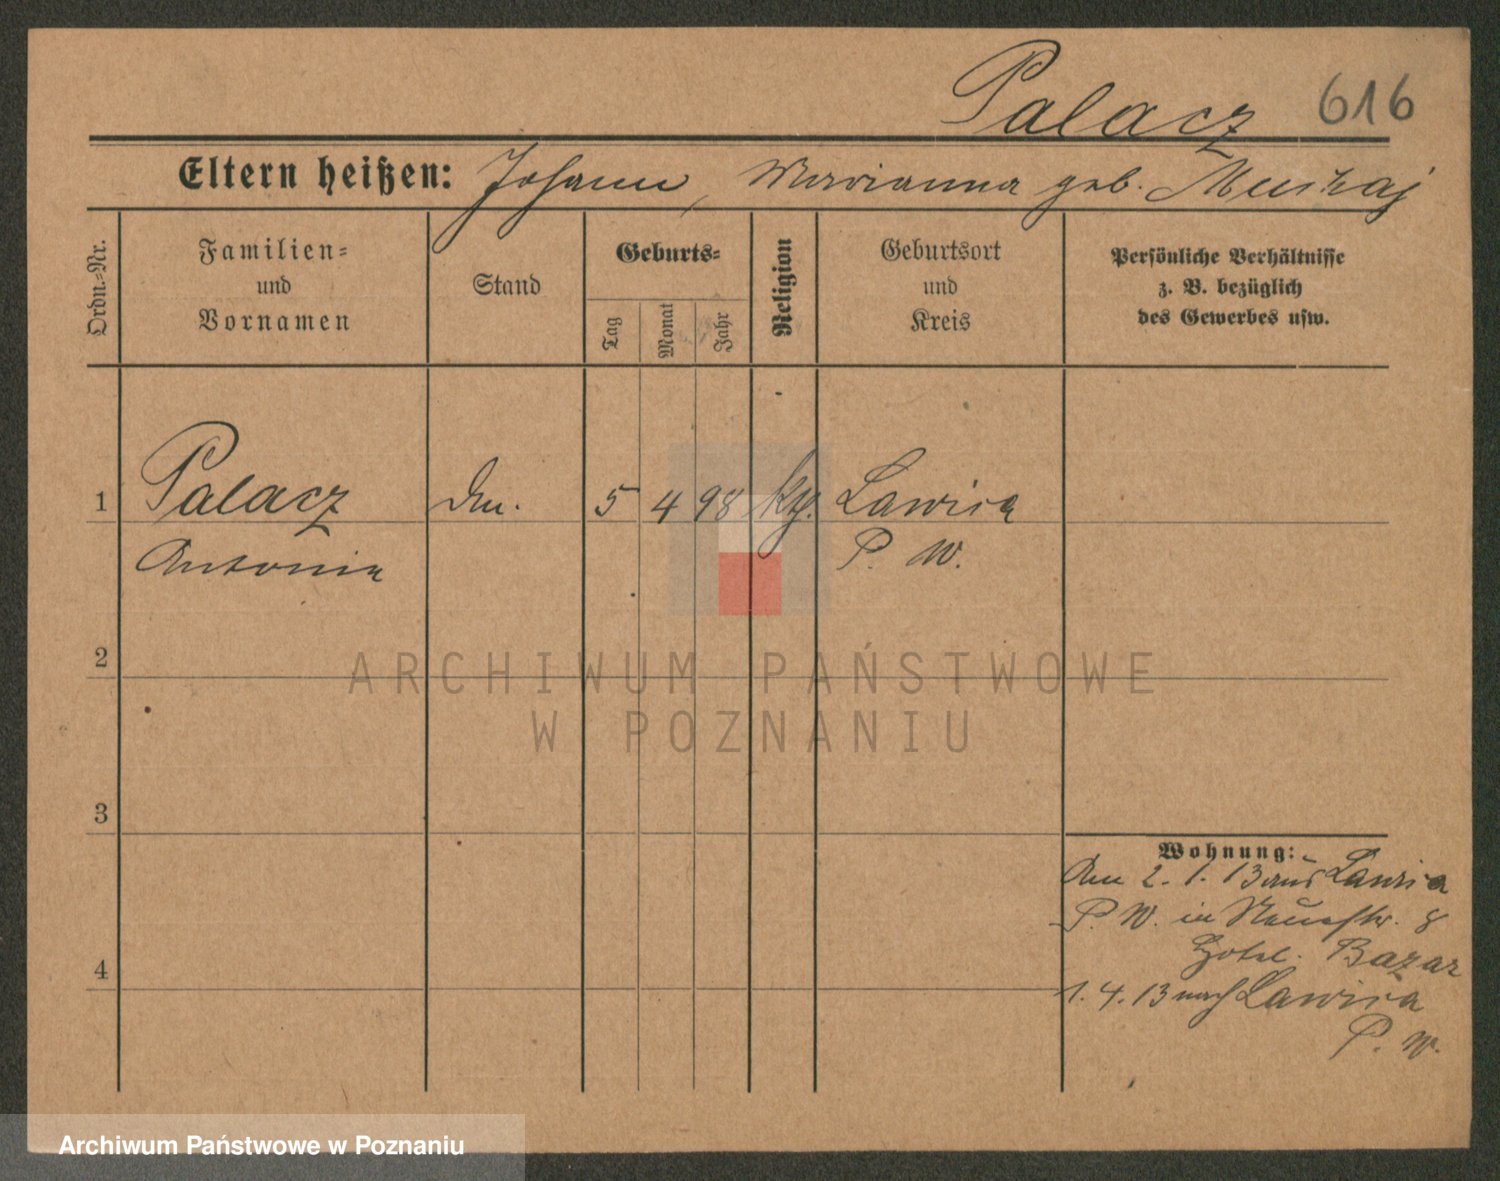 Palacz 616
Eltern heißen: Johann, Marianna geb.
Ordn.-Nr.
Familien-
und
Vornamen
Stand
Geburts-
Tag
Monat
Jahr
Religion
Geburtsort
und
Kreis
Persönliche Verhältnisse
z. B. bezüglich
des Gewerbes usw.
1 Palacz 5 4 98 Lawica
Antonia P. W.
2
3
4
Wohnung:
2. 1. 13 aus Lawica
P. W. in Neuestr. 8
Hotel Bazar
1. 4. 13 nach Lawica
P. W.
ARCHIWUM PAŃSTWOWE
W POZNANIU
Archiwum Państwowe w Poznaniu